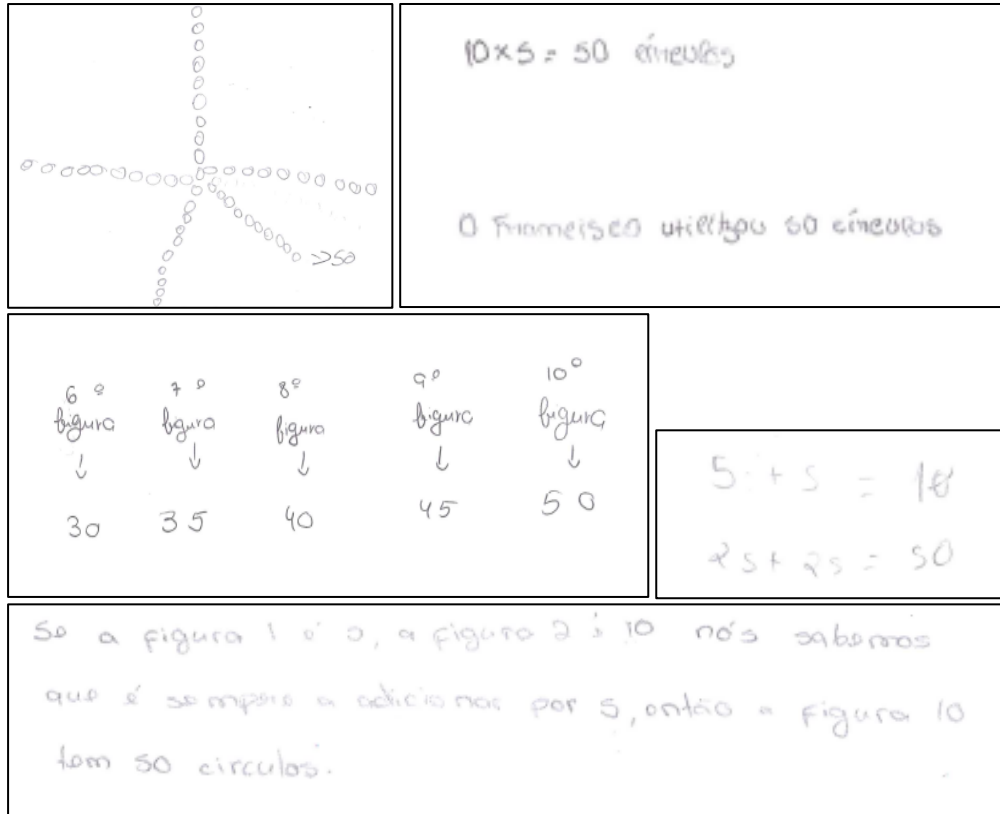 >>50
10 x 5 = 50 círculos
O Francisco utilizou 50 círculos
6º 7º 8º 9º 10º
figura figura figura figura figura
↓ ↓ ↓ ↓ ↓
30 35 40 45 50
5 + 5 = 10
25 + 25 = 50
Se a figura 1 é 5, a figura 2 é 10 nós sabemos
que é sempre a adicionar por 5, então a figura 10
tem 50 circulos.